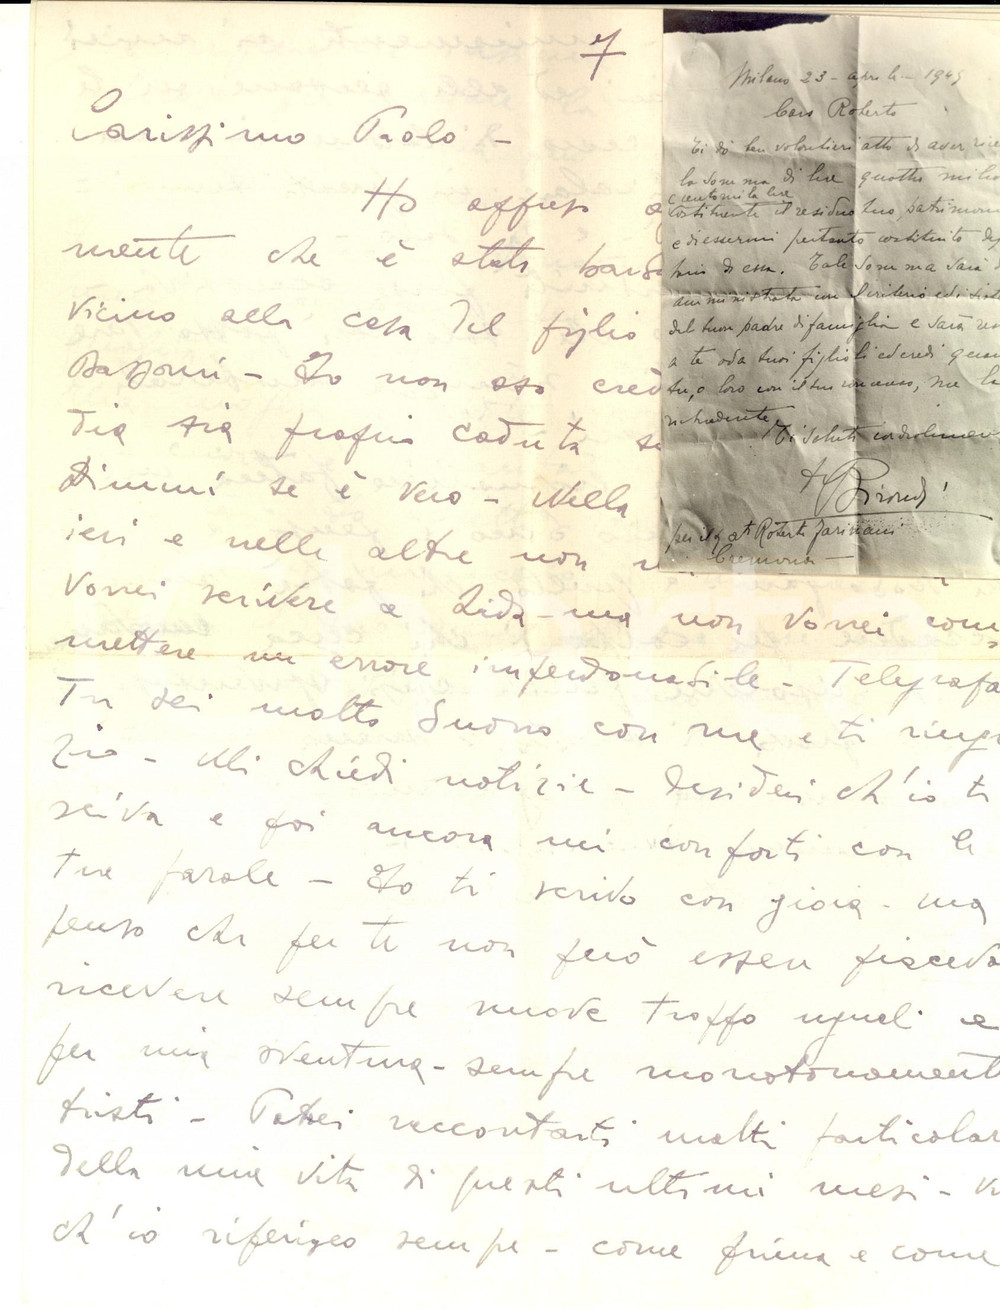 7
Carissimo Paolo -
Ho appreso
mente che è stato
vicino alla casa del figlio
Bazzoni - Io non oso
dia sia proprio caduta
Dimmi se è vero - Nella
ieri e nelle altre non
Vorrei scrivere a Lida - ma non vorrei com
mettere un errore imperdonabile - Telegrafa
Tu sei molto buono con me e ti ringr
zio - Mi chiedi notizie - desideri ch'io ti
scriva e poi ancora mi conforti con le
tue parole - Io ti scrivo con gioia - ma
penso che per te non può essere piacevo
ricevere sempre nuove troppo uguali e
per mia sventura - sempre monotonament
tristi - Potrei raccontarti molti particolar
della mia vita di questi ultimi mesi - V
ch'io riferisco sempre - come prima e come
Milano 23 - aprile - 1945
Caro Roberto
Ti do ben volentieri atto di aver rice
la somma di lire quattro milio
centomila lire
costituente il residuo tuo patrimon
e di essermi pertanto costituito dep
tario di essa. Tale somma sarà
amministrata con criterio ed
del buon padre di famiglia e sarà
a te o da tuoi figli od eredi quan
tu, o loro con il tuo consenso, me la
richiederete
Ti saluto cordialmente
per il
Roberto Farinacci
Cremona